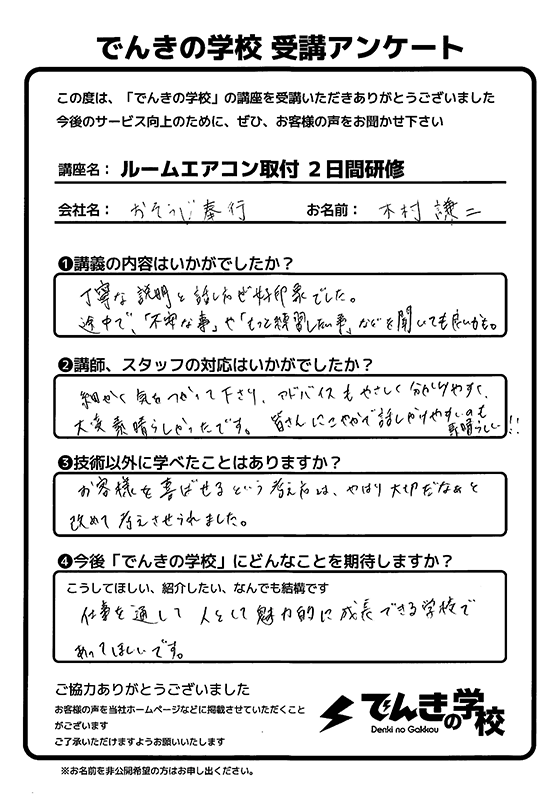 でんきの学校 受講アンケート
この度は、「でんきの学校」の講座を受講いただきありがとうございました
今後のサービス向上のために、ぜひ、お客様の声をお聞かせ下さい
講座名： ルームエアコン取付 ２日間研修
会社名： おそうじ奉行 お名前： 木村 謙二
❶講義の内容はいかがでしたか？
丁寧な説明と話し方で好印象でした。
途中で、「不安な事」や「もっと練習したい事」などを聞いても良いかも。
❷講師、スタッフの対応はいかがでしたか？
細かく気をつかって下さり、アドバイスもやさしく分かりやすく、
大変素晴らしかったです。 皆さんにこやかで話しかけやすいのも
素晴らしい!!
❸技術以外に学べたことはありますか？
お客様を喜ばせるという考え方は、やはり大切だなぁと
改めて考えさせられました。
❹今後「でんきの学校」にどんなことを期待しますか？
こうしてほしい、紹介したい、なんでも結構です
仕事を通して人として魅力的に成長できる学校で
あってほしいです。
ご協力ありがとうございました
お客様の声を当社ホームページなどに掲載させていただくこと
がございます
ご了承いただけますようお願いいたします
でんきの学校
Denki no Gakkou
※お名前を非公開希望の方はお申し出ください。